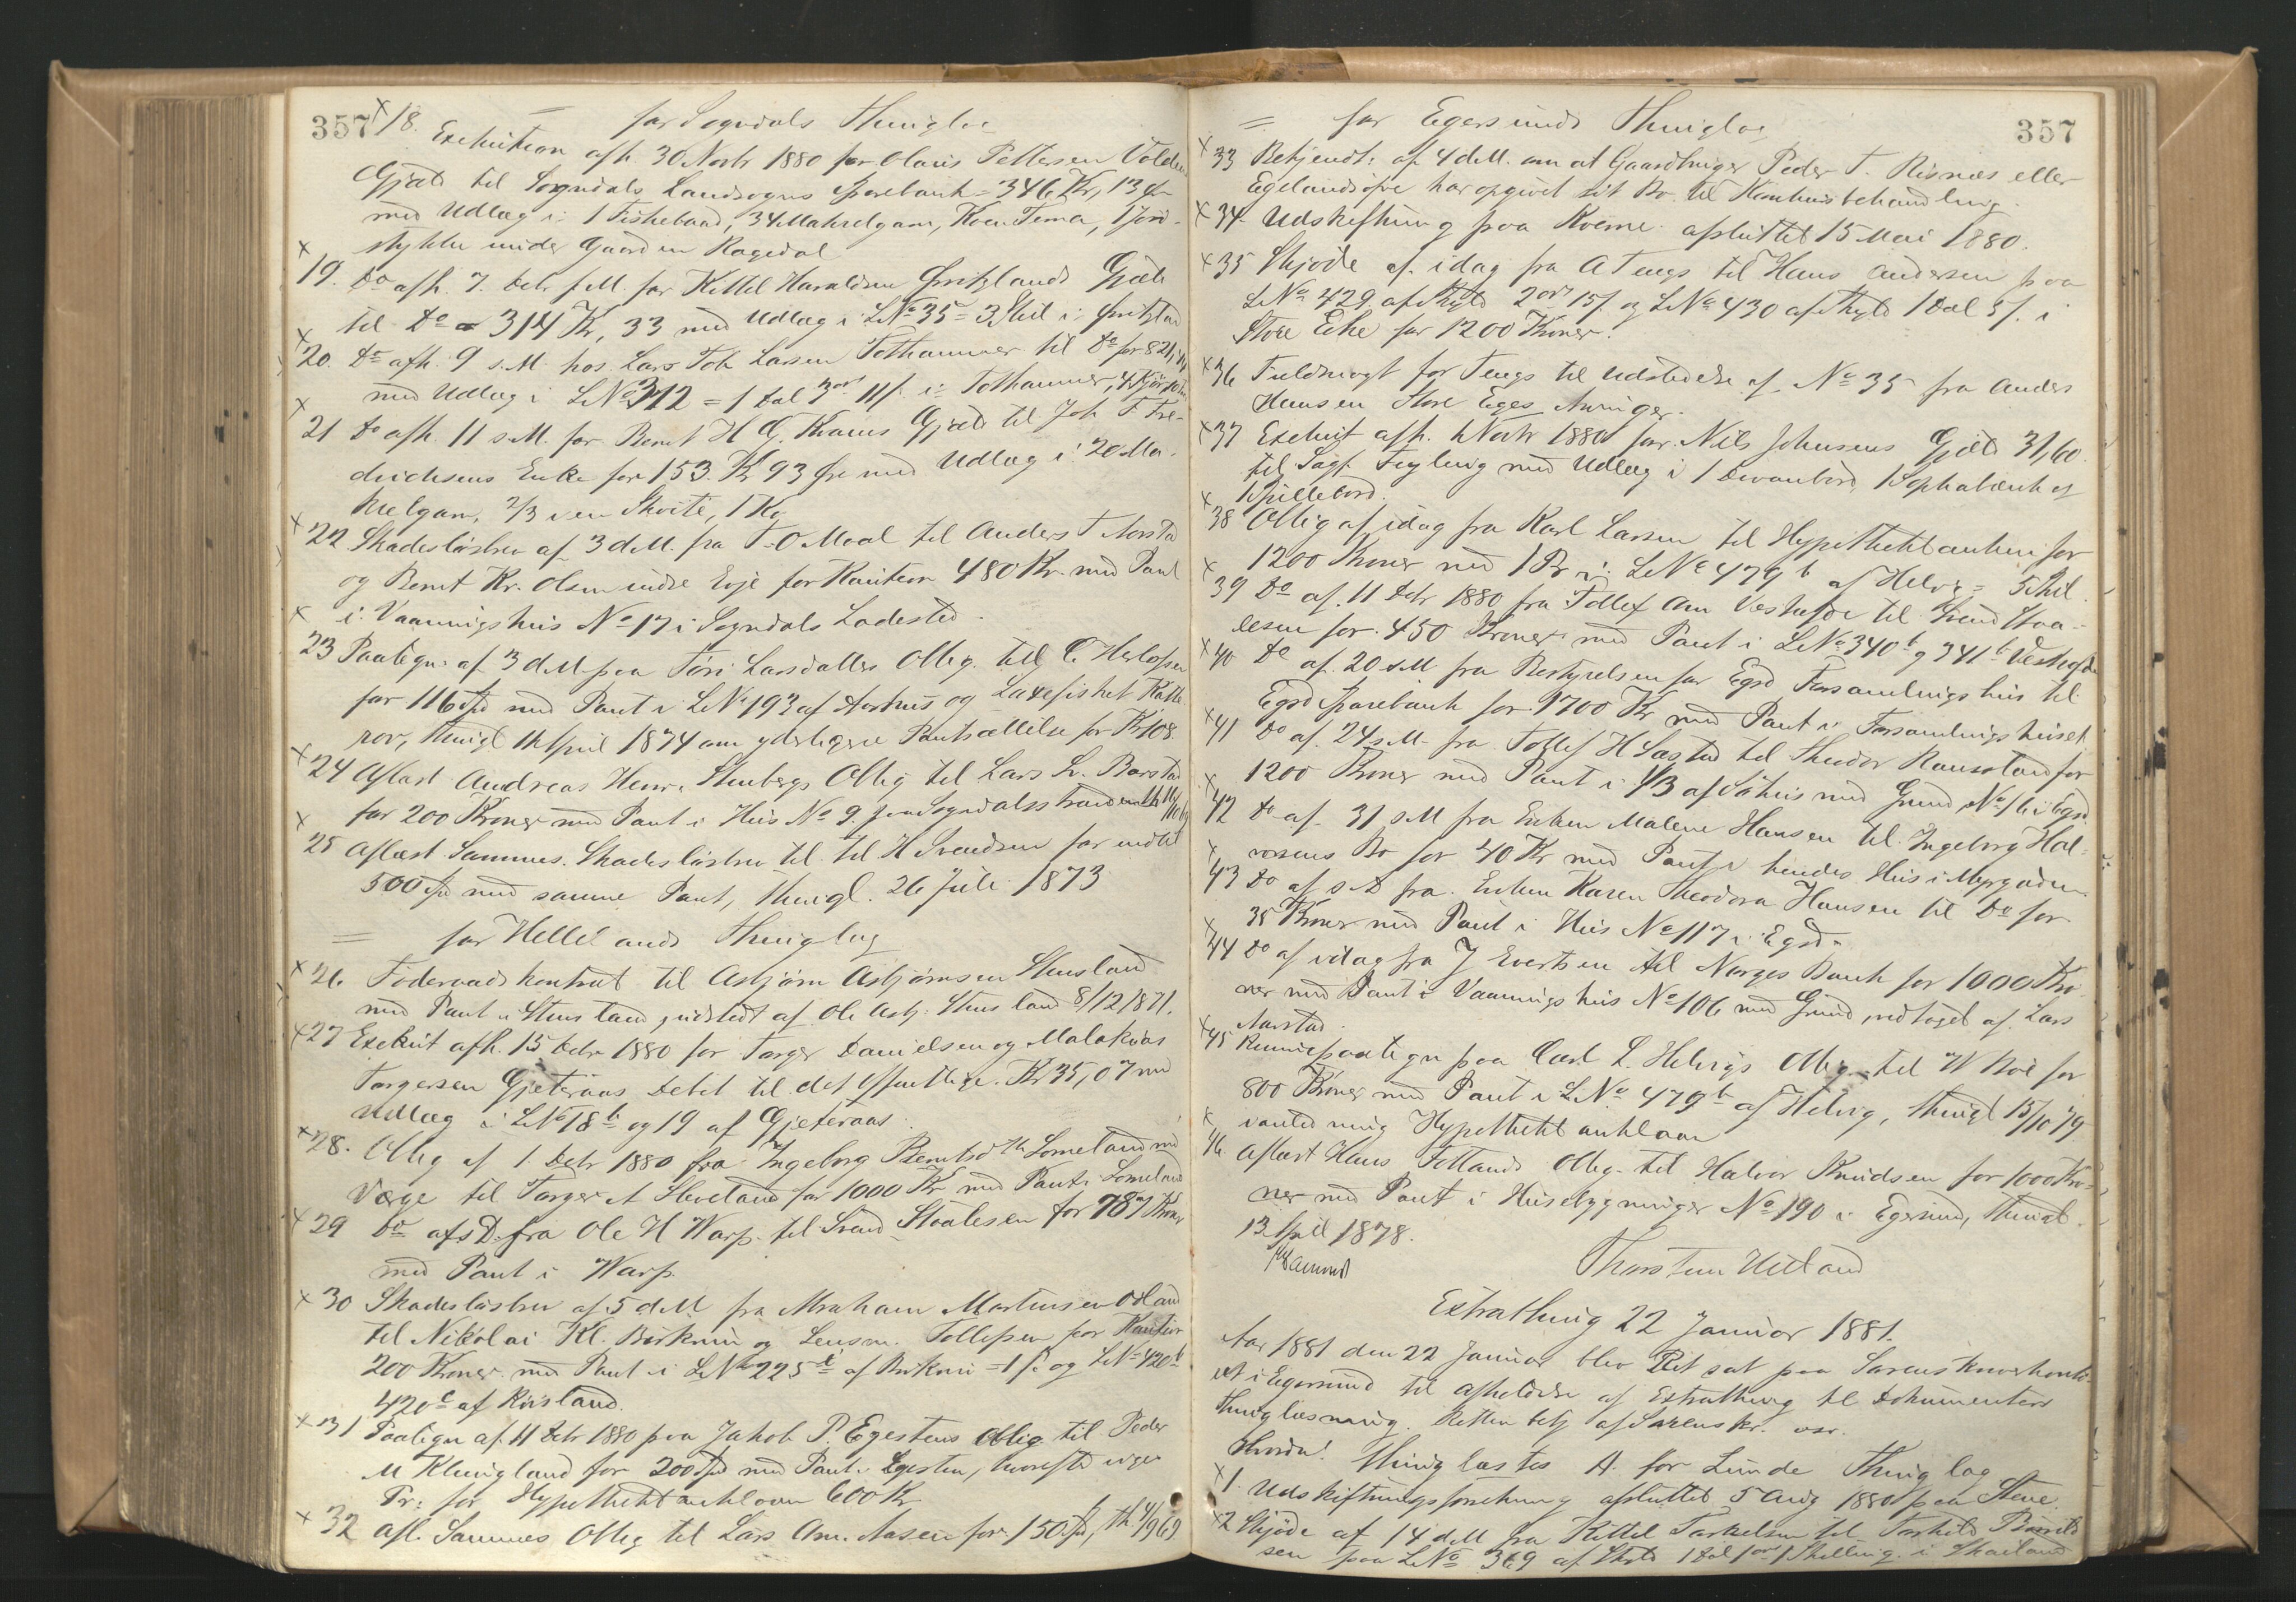 357
= for Sogndals Thinglag
18. Exekution afh. 30 Novbr 1880 for Olaus Pettersen
Gjæld til Sogndals Landsogns Sparebank = 346 Kr, 13 Øre
med Udlæg i 1 Fiskebaad, 34 Makrelgarn, 1 Jord-
stykke under Gaarden Rægedal
19. Do afh. 7. Debr f.M. for Kittel Haraldsen Øvritslands Gjæld
til Do = 314 Kr, 33 med Udlæg i LNo 35 = 3 Skil i
20. Do afh. 9 s.M. hos Lars Tob. Larsen Tothammer til Do for 821,
med Udlæg i LNo 312 = 1 dal 3 ort 11 s. i Tothammer,
21 Do afh. 11 s.M. for Bernt H G. Gjæld til Joh F. Fre-
drichsens Enke for 153 Kr 93 Øre med Udlæg i 20 Ma-
krelgarn, 2/3 i en Skøite, 1 Ko
22 Skadesløsbrev af 3 d.M. fra T. O. Moal til Anders T Aarstad
og Bernt Kr. Olsen indre Eije for Kaution 480 Kr. med Pant
i Vaaningshus No 17 i Sogndals Ladested.
23 Paategn: af 3 d.M. paa Tøri Larsdatters Oblig. til C.
for 116 Spd med Pant i LNo 193 af Aarhus og Laxefisket
, thingl. April 1874 om yderligere Pantsættelse for Kr 108.
24 Aflæst Andreas Henr. Stenbergs Oblig til Lars Sv. Barstad
for 200 Kroner med Pant i Hus No 9. paa Sogndalsstranden
25 Aflæst Sammes Skadesløsbrev til H Svendsen for indtil
500 Spd med samme Pant, thingl. 26 Juli 1873
= for Hellelands Thinglag
26. Føderaadskontrakt til Asbjørn Asbjørnsen Stensland
med Pant i Stensland, udstedt af Ole Asbj. Stensland 8/12 1871.
27 Exekut afh. 15 Debr 1880 for Tarjer Danielsen og Malakias
Torgersen Gjeteraas Debet til det Offentlige. Kr 35,07 med
Udlæg i LNo 18b og 19 af Gjeteraas.
28. Oblig af 1. Debr 1880 fra Ingeborg Berntsdtr Lomeland med
Værge til Tarjer A Heveland for 1000 Kr med Pant i Lomeland
29 Do af s.D. fra Ole H Warp. til Svend Staalesen for 787 Kroner
med Pant i Warp.
30 Skadesløsbrev af 5 d.M fra Abraham Martinsen
til Nikolai Kl. Birkrem og Lensm. Tollefsen for Kaution
200 Kroner med Pant i LNo 225 af Birkrem = 1 s. og LNo 420b
420c af Røisland.
31 Paategn af 11 Debr 1880 paa Jakob P. Egestens Oblig til Peder
M Klungland for 200 Spd med Pant i Egesten, hvorefter viger
Pr: for Hypothekbanklaan 600 Kr
32 Afl. Sammes Oblig til Lars Am. Aasen for 150 Spd, th. 4/9 69
357
= for Egersunds Thinglag
33 Bekjendt: af 4 d.M. om at Gaardbruger Peder T. Risnes eller
Egelandsøre har opgivet sit Bo til Konkursbehandling.
34 Udskiftning paa Kverne afsluttet 15 Mai 1880.
35 Skjøde af idag fra A Tengs til Hans Andersen paa
LNo 429 af Skyld 2 ort 15 s. og LNo 430 af Skyld 1 dal 5 s. i
Store Eike for 1200 Kroner.
36 Fuldmagt for Tengs til Udstedelse af No 35 fra Anders
Hansen Store Eges Arvinger.
37 Exekut afh. Novbr 1880 for Nils Johnsens Gjæld 31,60.
til Sagf. Feyling med Udlæg i 1 Divanbord, 1 Sophabænk og
1 Spillebord.
38 Oblig af idag fra Karl Larsen til Hypothekbanken for
1200 Kroner med 1 Pr i LNo 479b af Helvig = 5 Skil.
39 Do af. 11 Debr 1880 fra Tollef Am Vestrefde til Svend Staa-
lesen for 450 Kroner med Pant i LNo 340b og 341b
40 Do af. 20 s.M fra Bestyrelsen for Egsd Forsamlingshus til
Egsd Sparebank for 1700 Kr med Pant i Forsamlingshuset
41 Do af. 24 s.M. fra Tollef H Sæstad til Theodor for
1200 Kroner med Pant i 1/3 af Søhus med Grund No 16 i Egsd.
42 Do af. 31 s.M fra Enken Malene Hansen til Ingeborg Hal-
vorsens Bo for 40 Kr med Pant i hendes Hus i Myrgaden
43 Do af s.D fra Enken Karen Theodora Hansen til Do for
35 Kroner med Pant i Hus No 117 i Egsd.
44 Do af idag fra J Evertsen til Norges Bank for 1000 Kro-
ner med Pant i Vaaningshus No 106 med Grund, vedtaget af Lars
Aarstad.
45 paategn paa Carl L. Helvigs Oblig. til W Boe for
800 Kroner med Pant i LNo 479b af Helvig, thingl 15/10 79
Hypothekbanklaan
46 Aflæst Hans Fotlands Oblig. til Halvor Knudsen for 1000 Kro-
ner med Pant i Husebygninger No 190 i Egersund, thingl.
13 April 1878.
Thorsten Hetland
Extrathing 22 Januar 1881.
Aar 1881 den 22 Januar blev Ret sat paa Sorenskriverkonto-
ret i Egersund til Afholdelse af Extrathing til Dokumenters
thinglæsning. Retten betj af Sorenskr. osv.
Hvorda! Thinglæstes A. for Lunde Thinglag
1. Udskiftningsforretning afsluttet 5 Aug 1880 paa Stene.
2 Skjøde af 14 d.M fra Kittel Tarkelsen til Torkild
sen paa LNo 369 af Skyld 1 dal 1 ort 1 Skilling i Skailand